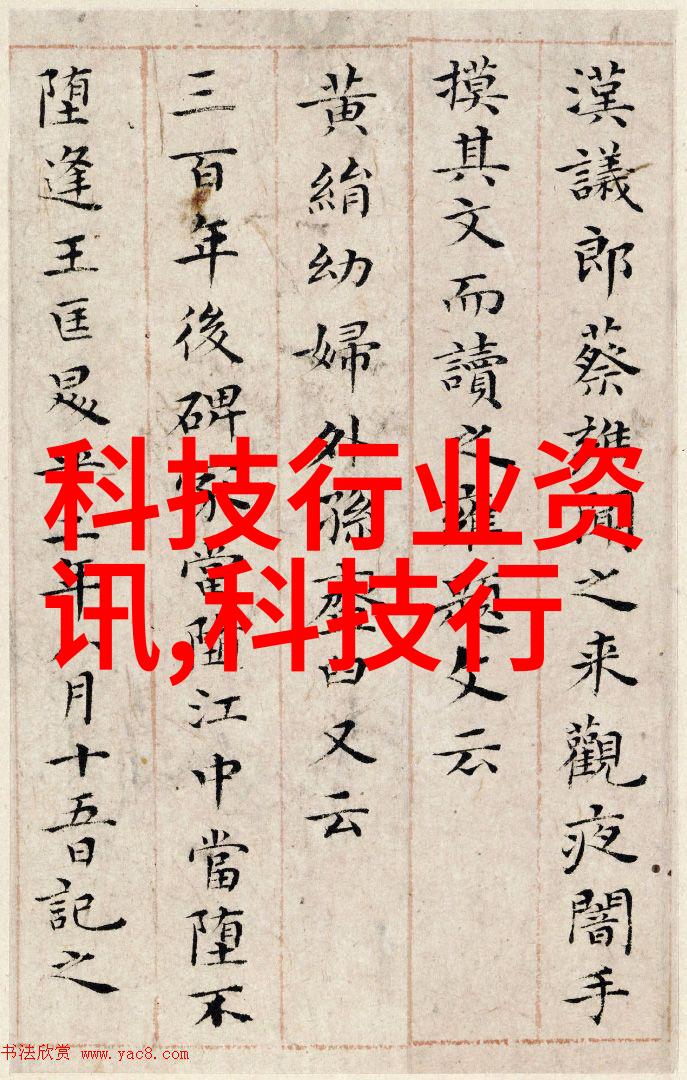 漢議郎蔡雍聞之来觀夜闇手
摸其文而讀之雍題文云
黃絹幼婦外孫臼又云
三百年後碑冢當堕江中當堕不
堕逢王匡年月十五日記之
科技行业资
讯,科技行
书法欣赏 www.yac8.com